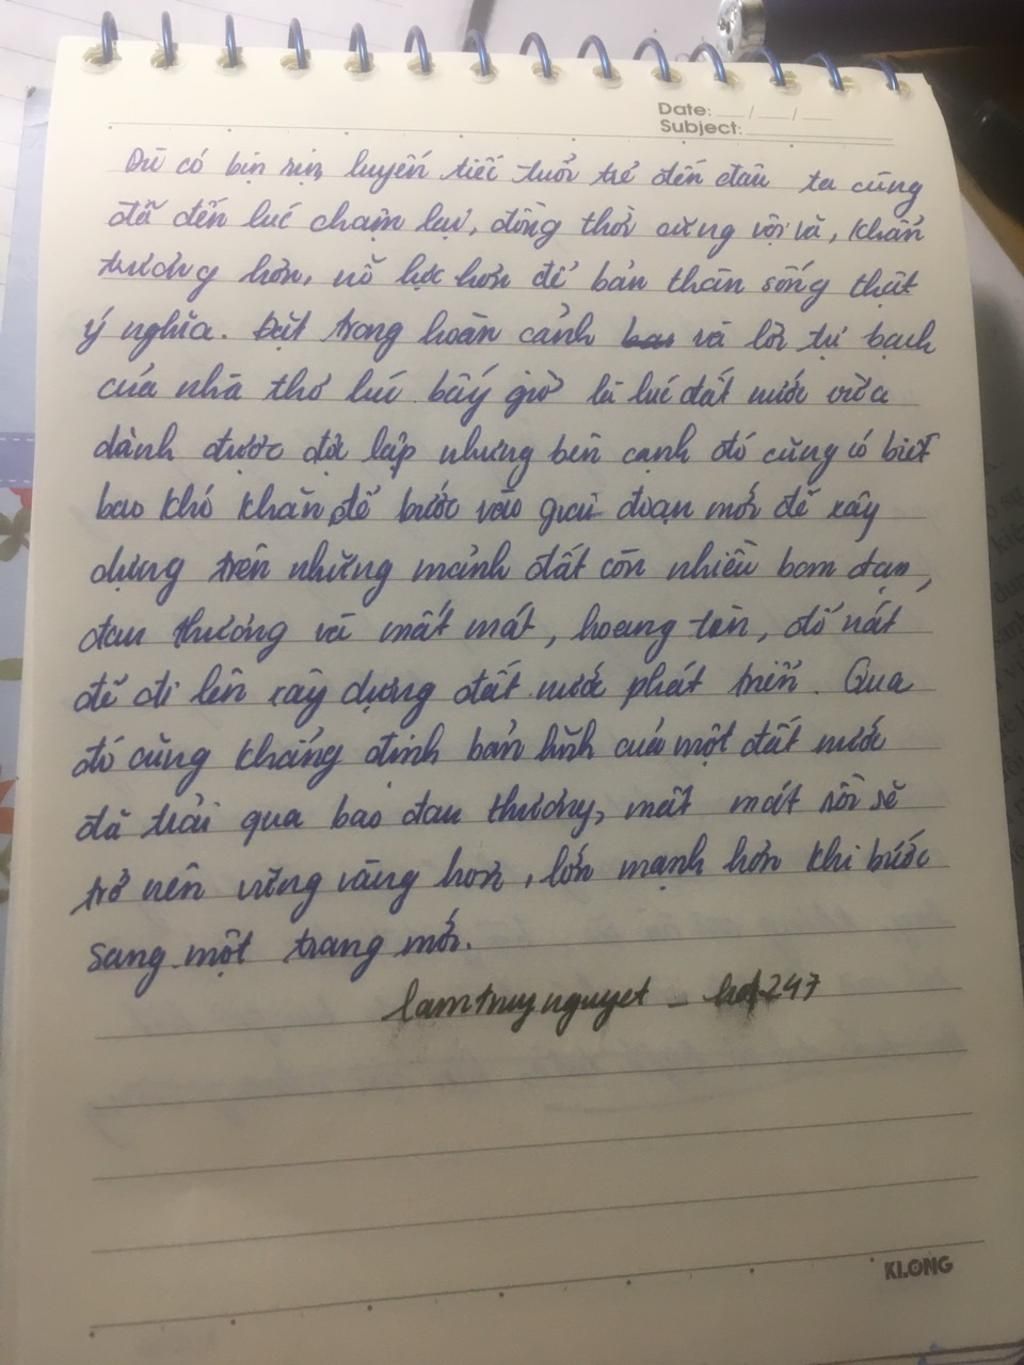 Date: __/__/__
Subject:
Dù có bịn rịn, luyến tiếc tuổi trẻ đến đâu ta cũng
đã đến lúc chậm lại, đồng thời cũng vội vã, khẩn
trương hơn, nỗ lực hơn để bản thân sống thật
ý nghĩa. Đặt trong hoàn cảnh và lời tự bạch
của nhà thơ lúc bấy giờ là lúc đất nước vừa
dành được độc lập nhưng bên cạnh đó cũng có biết
bao khó khăn để bước vào giai đoạn mới để xây
dựng trên những mảnh đất còn nhiều bom đạn,
đau thương và mất mát, hoang tàn, đổ nát
để đi lên xây dựng đất nước phát triển. Qua
đó cũng khẳng định bản lĩnh của một đất nước
đã trải qua bao đau thương, mất mát rồi sẽ
trở nên vững vàng hơn, lớn mạnh hơn khi bước
sang một trang mới.
lamthuynguyet - hd247
KLONG